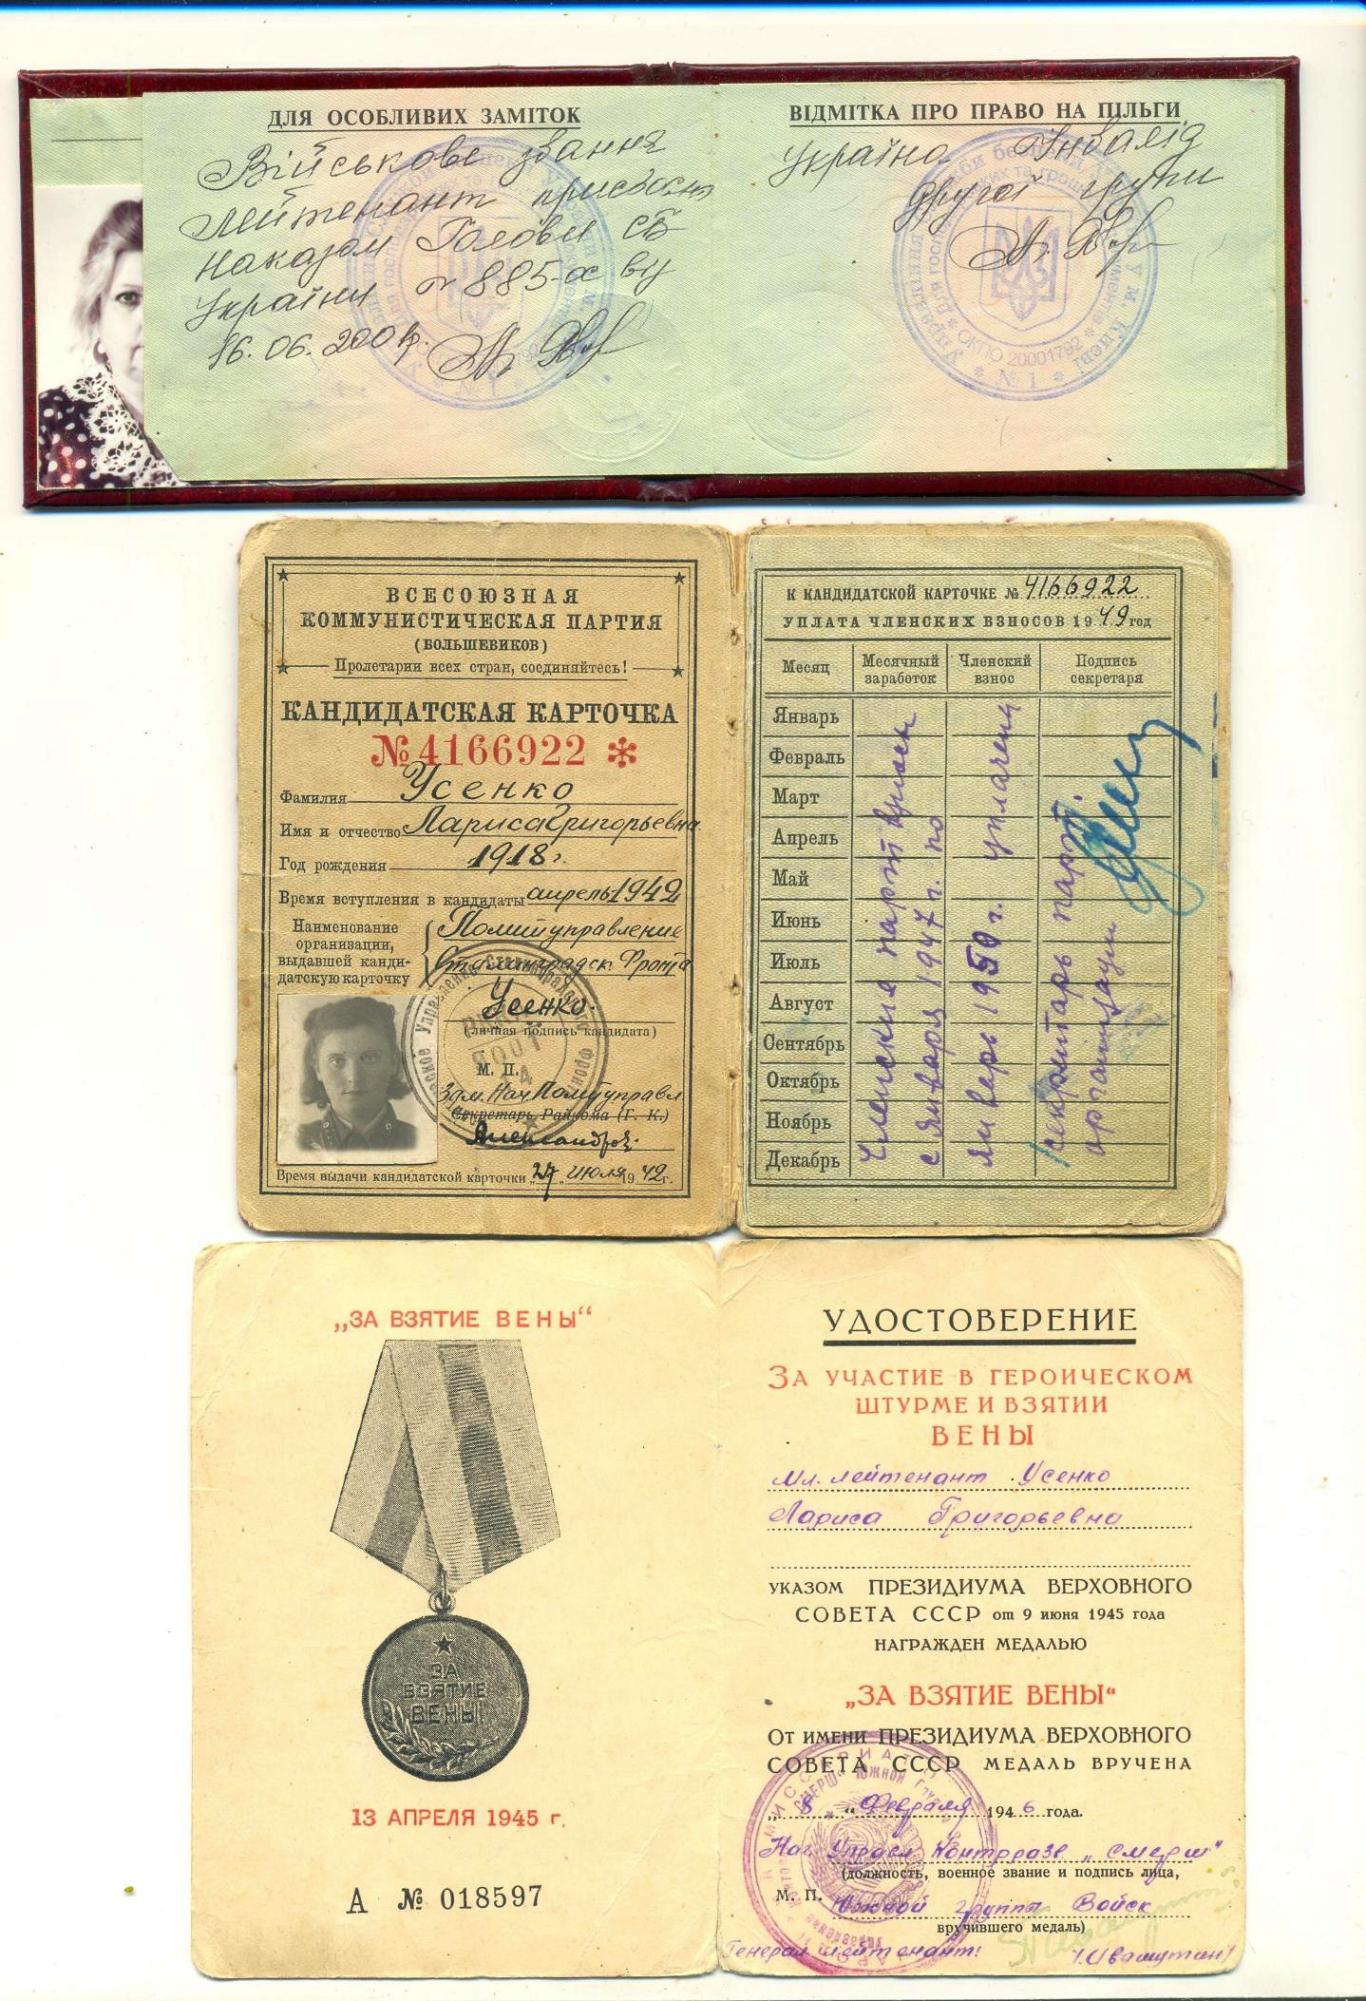 ДЛЯ ОСОБЛИВИХ ЗАМІТОК
Військове звання
лейтенант присвоєно
наказом Голови СБ
України
16.06.200
ВІДМІТКА ПРО ПРАВО НА ПІЛЬГИ
Україна Інвалід
другої групи
ОКПО 20001792
№ 1
ВСЕСОЮЗНАЯ
КОММУНИСТИЧЕСКАЯ ПАРТИЯ
(БОЛЬШЕВИКОВ)
Пролетарии всех стран, соединяйтесь!
КАНДИДАТСКАЯ КАРТОЧКА
№ 4166922 *
Фамилия Усенко
Имя и отчество Лариса Григорьевна
Год рождения 1918 г.
Время вступления в кандидаты апрель 1942
Наименование организации, выдавшей канди-датскую карточку
Политуправление
Сталинградск. Фронта
Усенко
(личная подпись кандидата)
М. П.
Зам. Нач. Политуправл
Секретарь Райкома (Г. К.)
Время выдачи кандидатской карточки „27" июля 1942 г.
К КАНДИДАТСКОЙ КАРТОЧКЕ № 4166922
УПЛАТА ЧЛЕНСКИХ ВЗНОСОВ 1949 год
Месяц Месячный заработок Членский взнос Подпись секретаря
Январь
Февраль
Март
Апрель
Май
Июнь
Июль
Август
Сентябрь
Октябрь
Ноябрь
Декабрь
Членские парт взносы
с января 1947 г. по
январь 1950 г. уплачены
секретарь парт.
организации
„ЗА ВЗЯТИЕ ВЕНЫ"
ЗА
ВЗЯТИЕ
ВЕНЫ
13 АПРЕЛЯ 1945 г.
А № 018597
УДОСТОВЕРЕНИЕ
ЗА УЧАСТИЕ В ГЕРОИЧЕСКОМ
ШТУРМЕ И ВЗЯТИИ
ВЕНЫ
Мл. лейтенант Усенко
Лариса Григорьевна
УКАЗОМ ПРЕЗИДИУМА ВЕРХОВНОГО
СОВЕТА СССР от 9 июня 1945 года
НАГРАЖДЕН МЕДАЛЬЮ
„ЗА ВЗЯТИЕ ВЕНЫ"
От имени ПРЕЗИДИУМА ВЕРХОВНОГО
СОВЕТА СССР МЕДАЛЬ ВРУЧЕНА
„8" февраля 1946 года.
Нач Управл Контрразв „Смерш"
(должность, военное звание и подпись лица,
М. П. Южной группы Войск
вручившего медаль)
Генерал лейтенант: /Ивашутин/